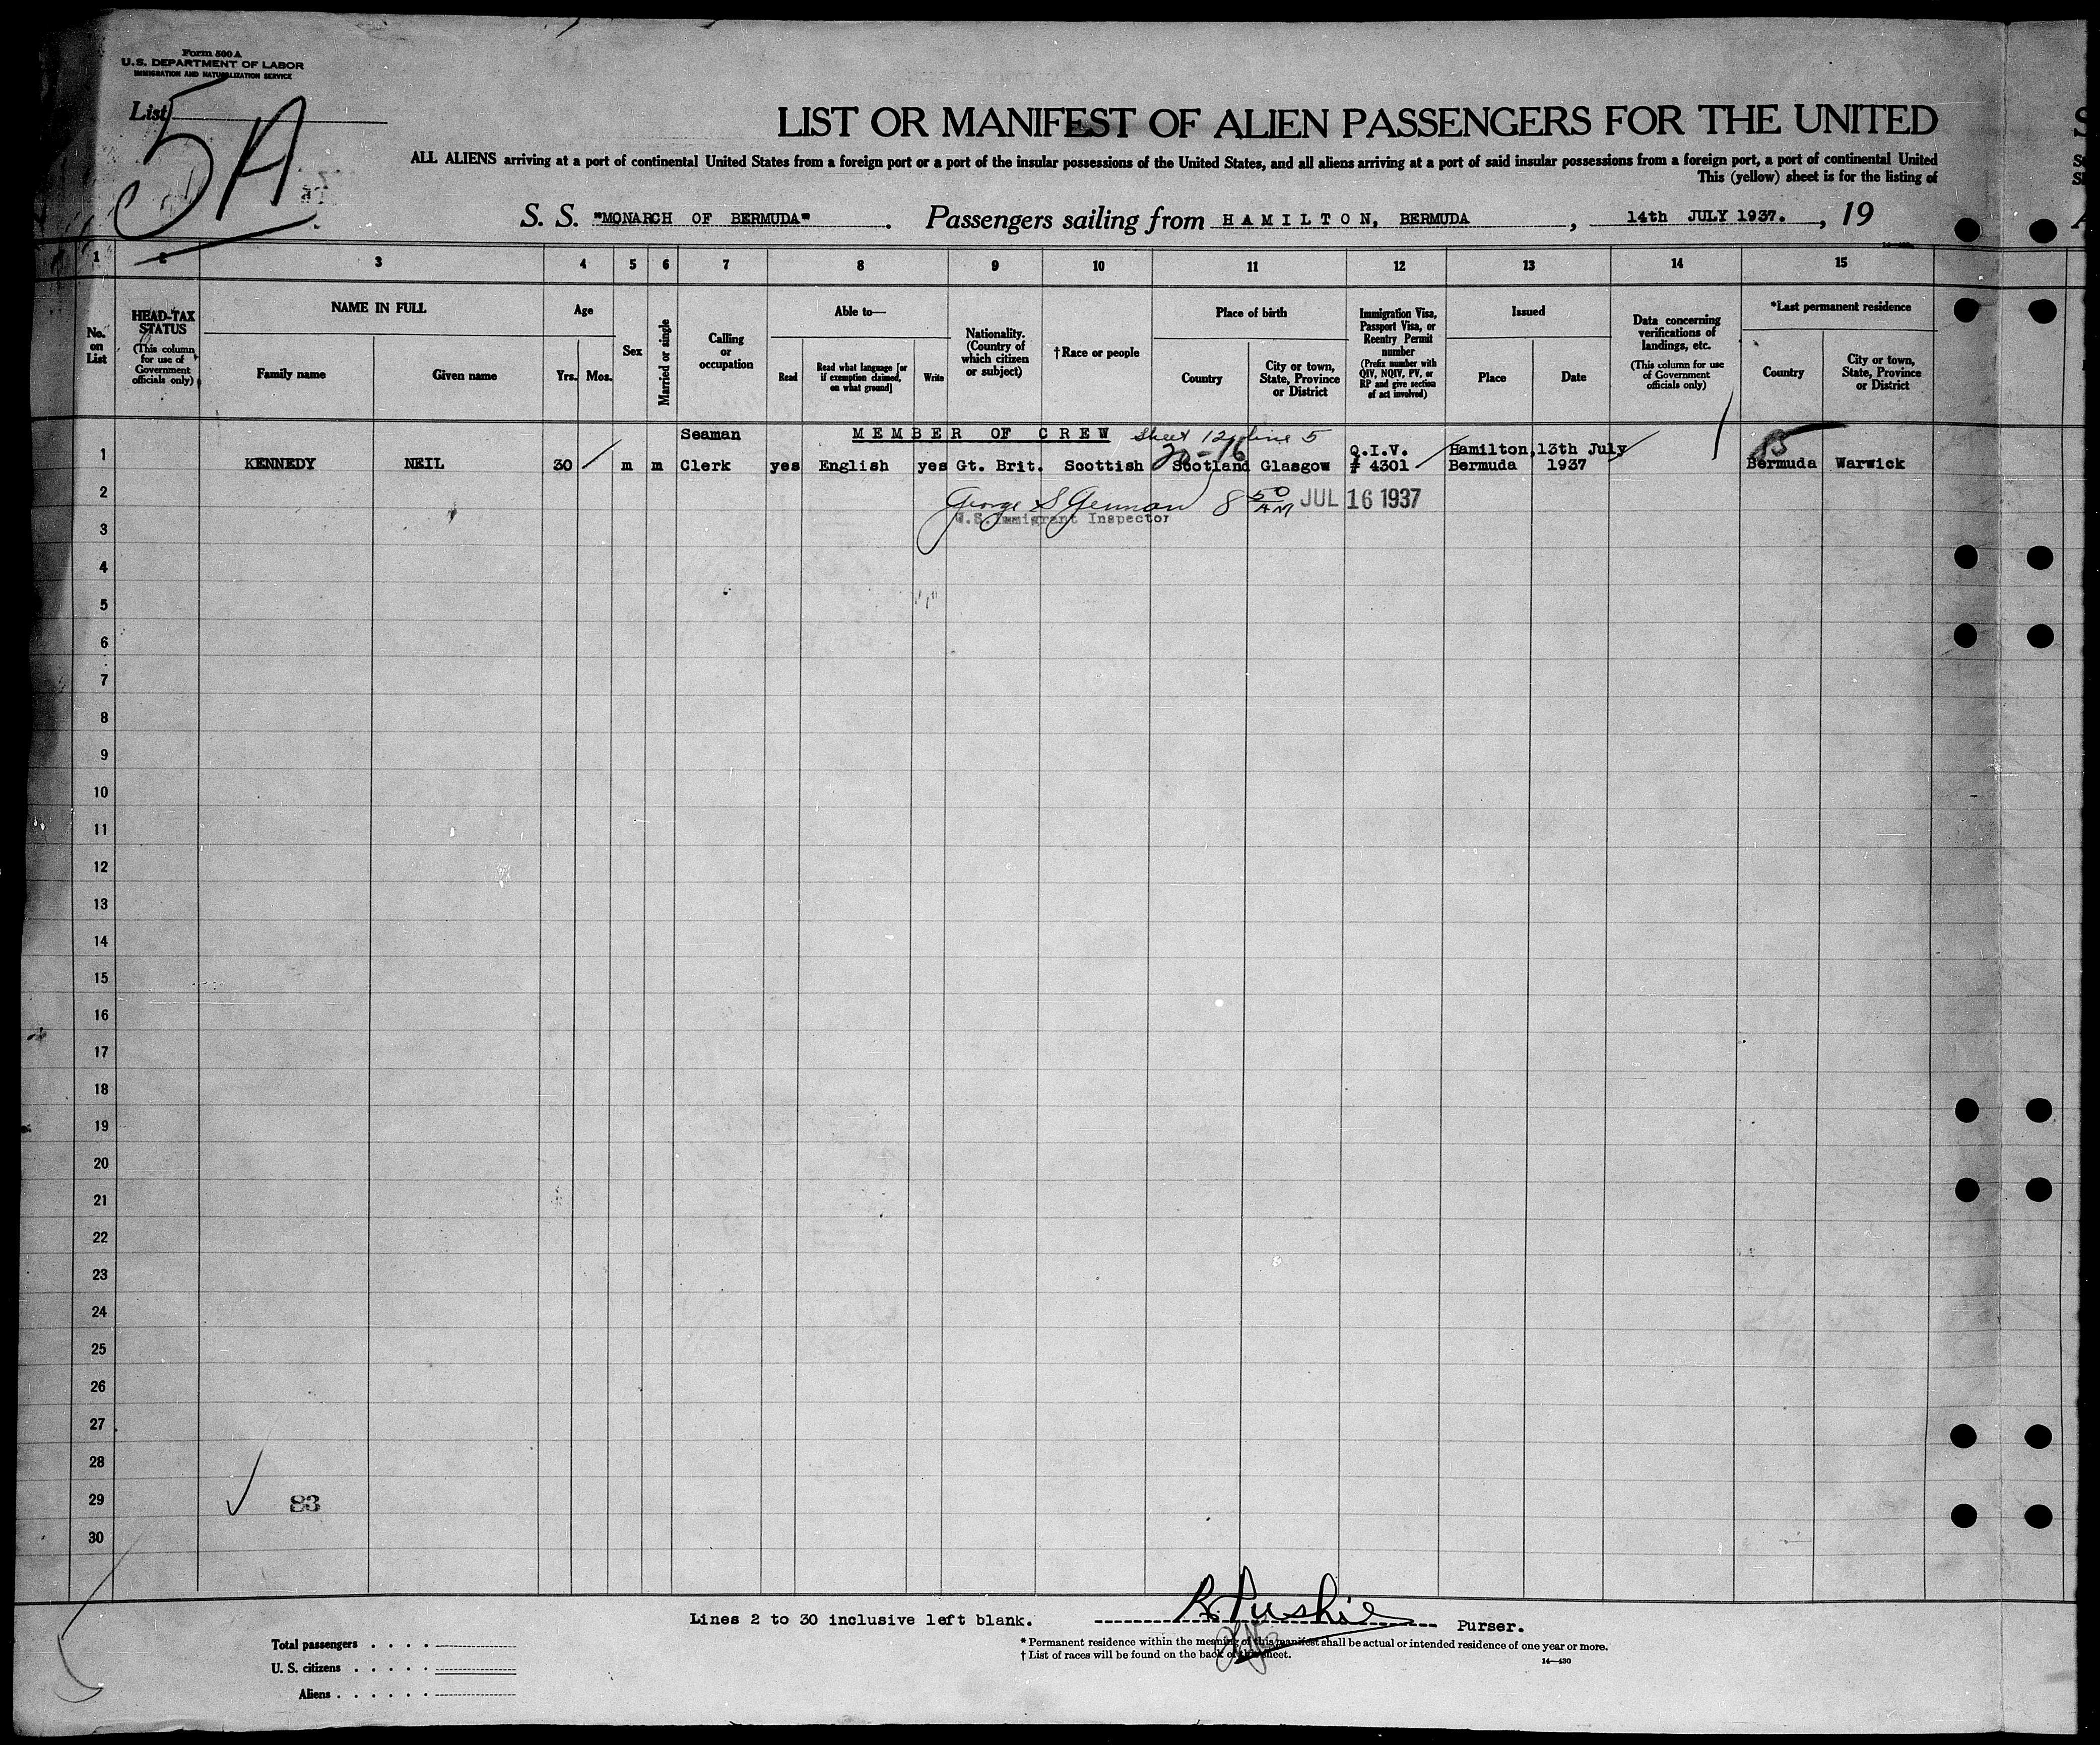 Form 500 A
U.S. DEPARTMENT OF LABOR
IMMIGRATION AND NATURALIZATION SERVICE
List 5A
LIST OR MANIFEST OF ALIEN PASSENGERS FOR THE UNITED
ALL ALIENS arriving at a port of continental United States from a foreign port or a port of the insular possessions of the United States, and all aliens arriving at a port of said insular possessions from a foreign port, a port of continental United
This (yellow) sheet is for the listing of
S. S. "MONARCH OF BERMUDA". Passengers sailing from HAMILTON, BERMUDA, 14th JULY 1937., 19
1 2 3 4 5 6 7 8 9 10 11 12 13 14 15
No. on List
HEAD-TAX STATUS
(This column for use of Government officials only)
NAME IN FULL
Family name
Given name
Age
Yrs. Mos.
Sex
Married or single
Calling or occupation
Able to—
Read
Read what language [or if exemption claimed, on what ground]
Write
Nationality. (Country of which citizen or subject)
†Race or people
Place of birth
Country
City or town, State, Province or District
Immigration Visa, Passport Visa, or Reentry Permit number
(Prefix number with QIV, NQIV, PV, or RP and give section of act involved)
Issued
Place
Date
Data concerning verifications of landings, etc.
(This column for use of Government officials only)
*Last permanent residence
Country
City or town, State, Province or District
Seaman MEMBER OF CREW Sheet 12 line 5
20-16 Q.I.V. Hamilton, 13th July
1 KENNEDY NEIL 30 m m Clerk yes English yes Gt. Brit. Scottish Scotland Glasgow # 4301 Bermuda 1937 Bermuda Warwick
2 George S German 8 50 AM JUL 16 1937
U.S. Immigrant Inspector
3
4
5
6
7
8
9
10
11
12
13
14
15
16
17
18
19
20
21
22
23
24
25
26
27
28
29 83
30
Lines 2 to 30 inclusive left blank. Purser.
Total passengers
U. S. citizens
Aliens
* Permanent residence within the meaning of this manifest shall be actual or intended residence of one year or more.
† List of races will be found on the back of this sheet.
14—430